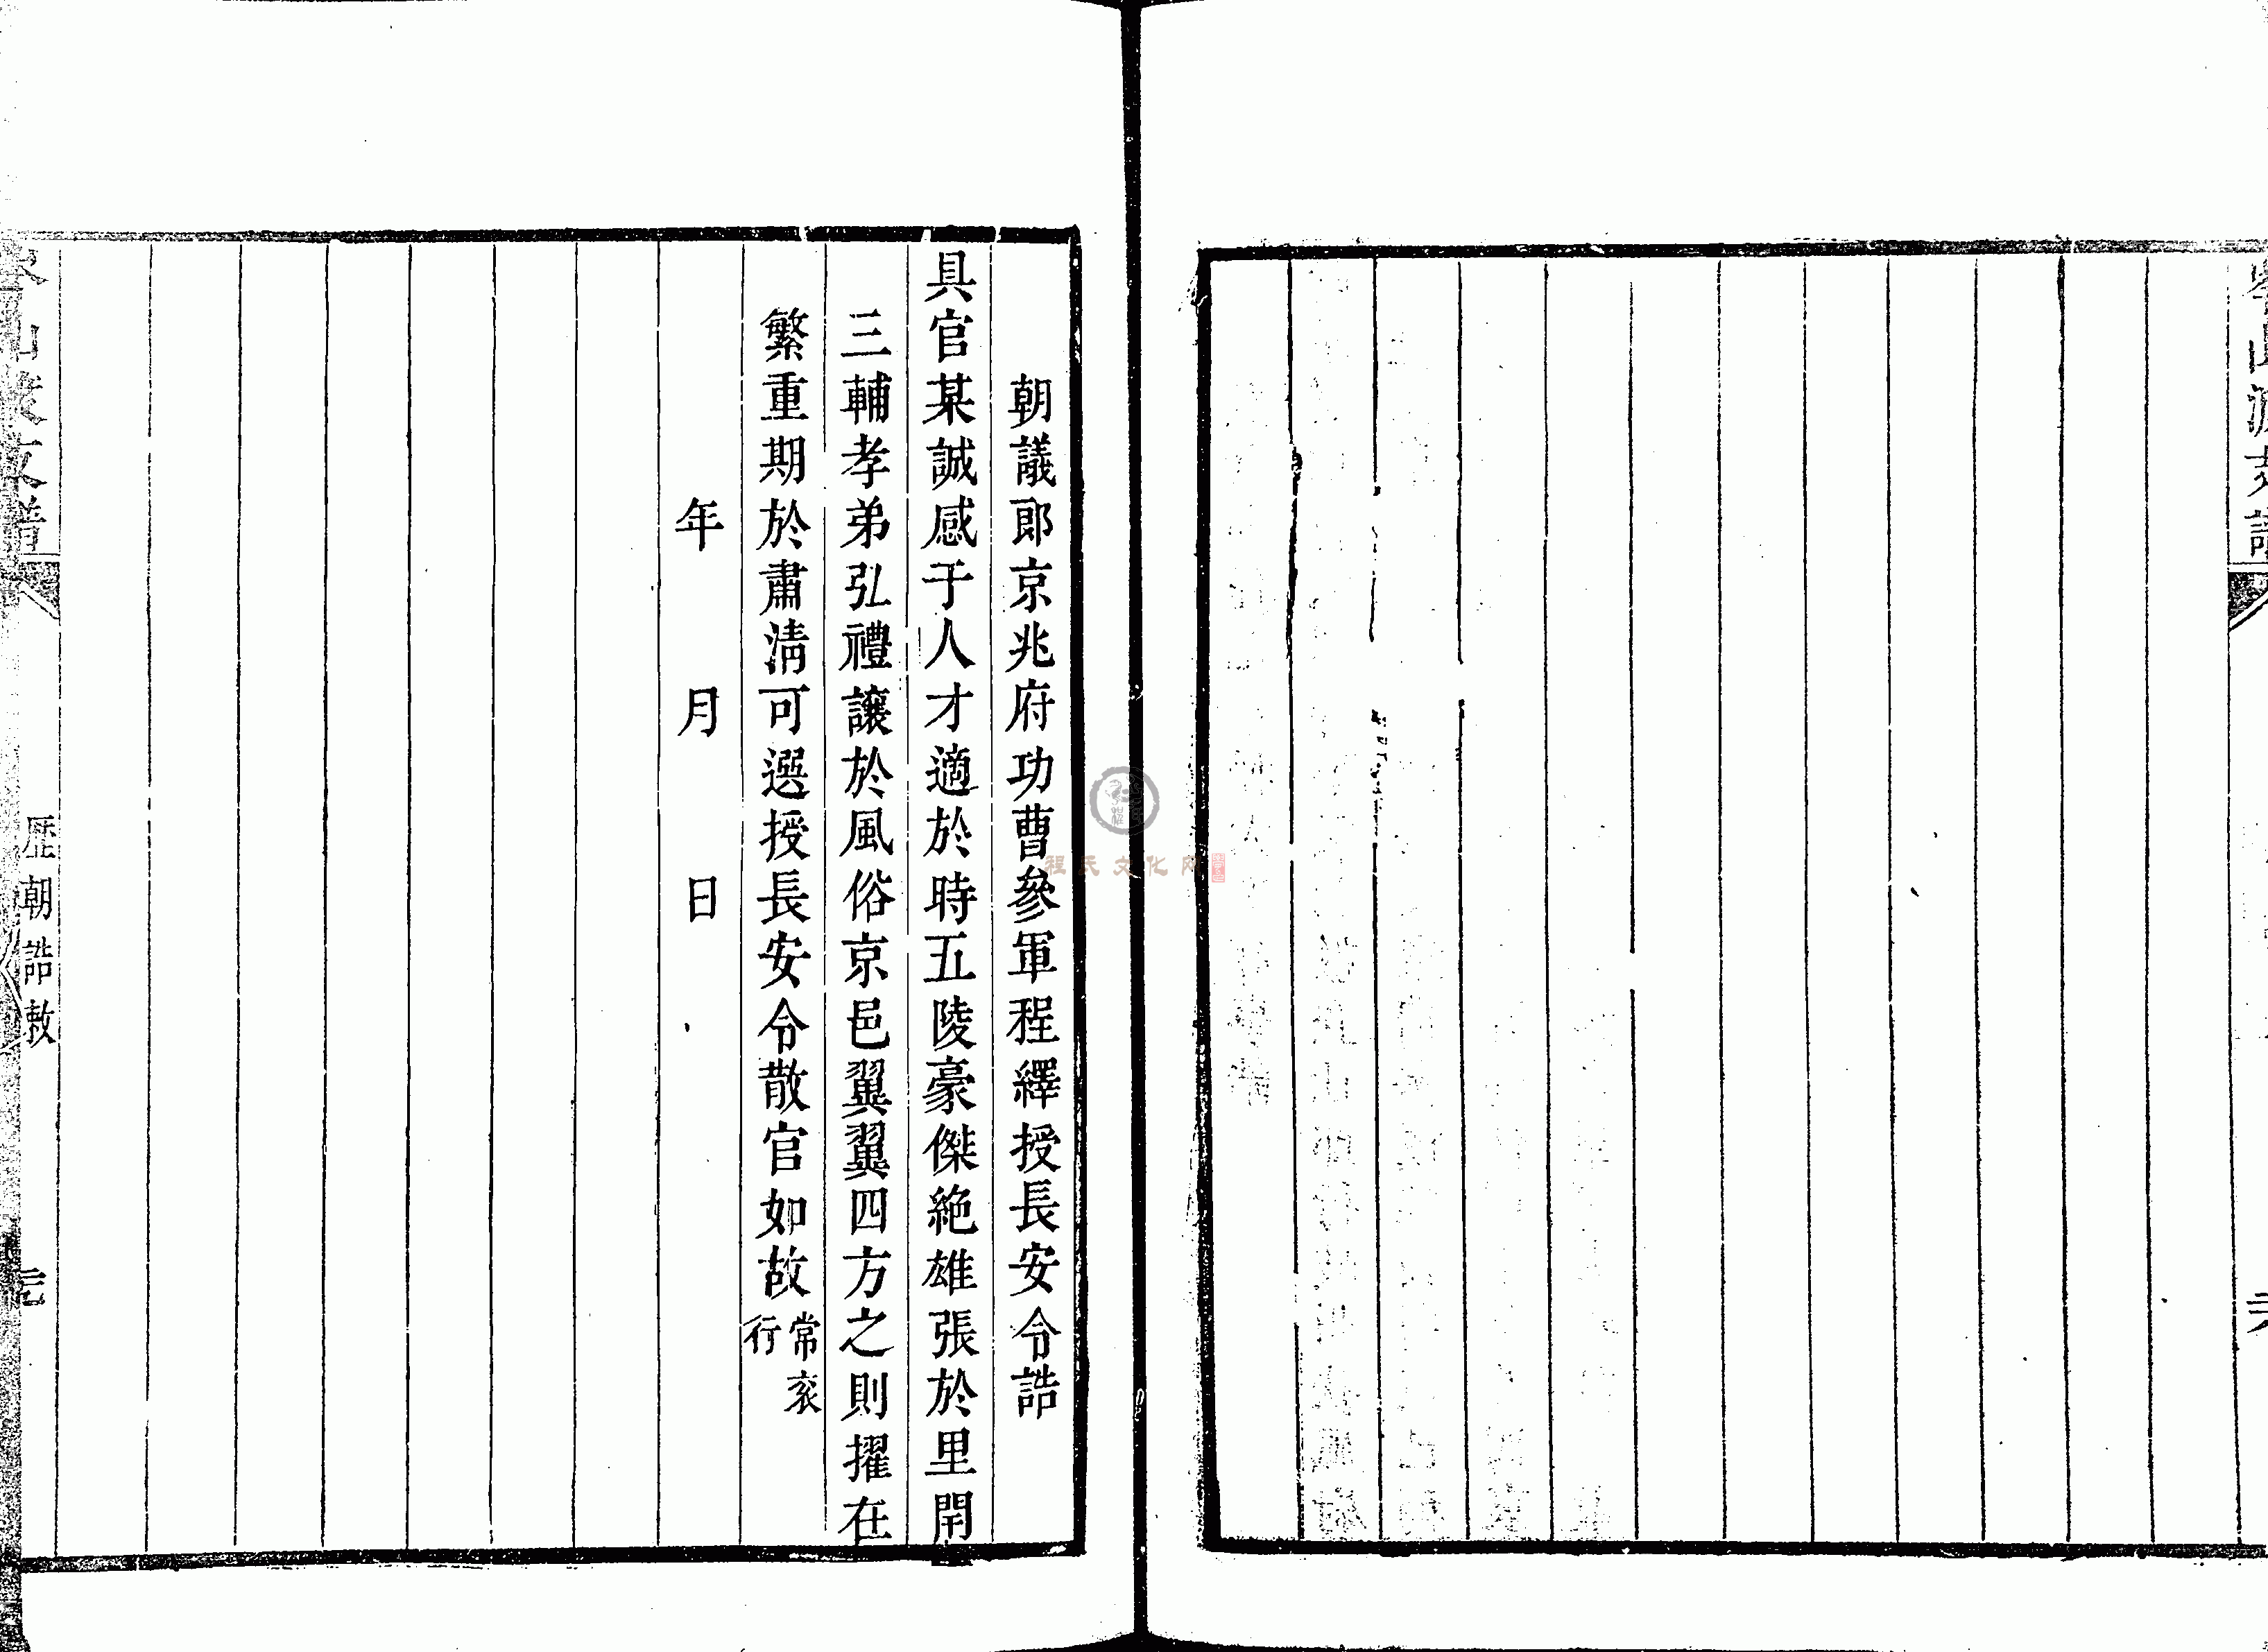 朝議郎京兆府功曹參軍程繹授長安令誥
具官某誠感于人才適於時五陵豪傑絶雄張於里閈
三輔孝弟弘禮讓於風俗京邑翼翼四方之則擢在
繁重期於肅淸可選授長安令散官如故常袞行
年 月 日
歷朝誥敕
程氏文化网